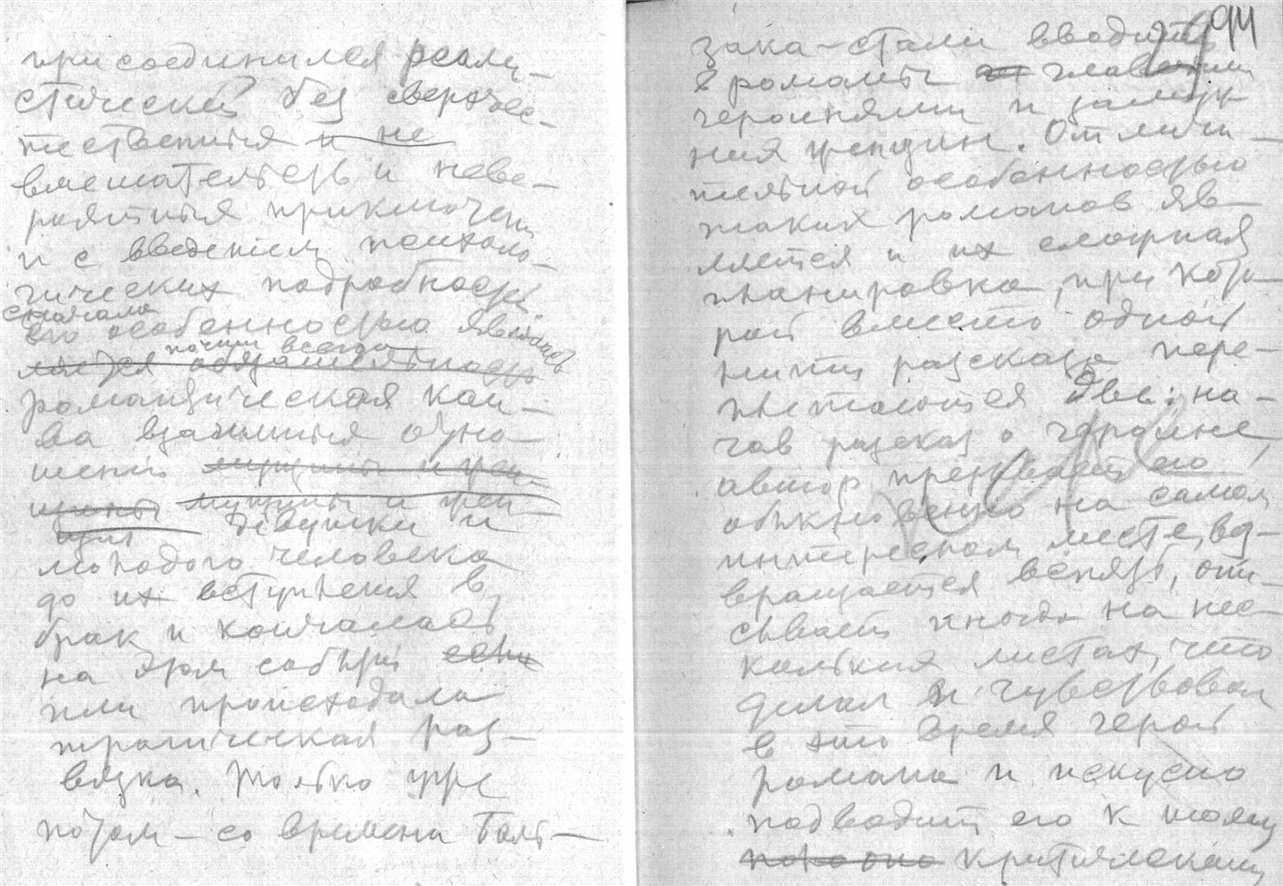 присоединился реали-
стический без сверхъес-
тественных и не
вмешательств и неве-
роятных приключений
и с введением психоло-
гических подробностей.
сначала
его особенностью являлась
почти всегда
лялся обязательность
романтическая кан-
ва взаимных отно-
шений мущины и жен-
щины мущины и жен-
щин девушки и
молодого человека
до их вступления в
брак и кончалась
на этом событии если
или происходила
трагическая раз-
вязка. Только уже
потом — со времени Баль-
94
зака - стали вводить
в романы главными
героинями и замуж-
ния женщин. Отличи-
тельной особенностью
таких романов яв-
ляется и их сложная
планировка, при кото-
рой вместо одной
нити рассказа пере-
плетаются две: на-
чав рассказ о героине,
автор прерывает его
обыкновенно на самом
интересном месте, воз-
вращается вспять, опи-
сывает иногда на нес-
кольких листах, что
делал и чувствовал
в это время герой
романа и искусно
подводит его к тому
пока оно критическому